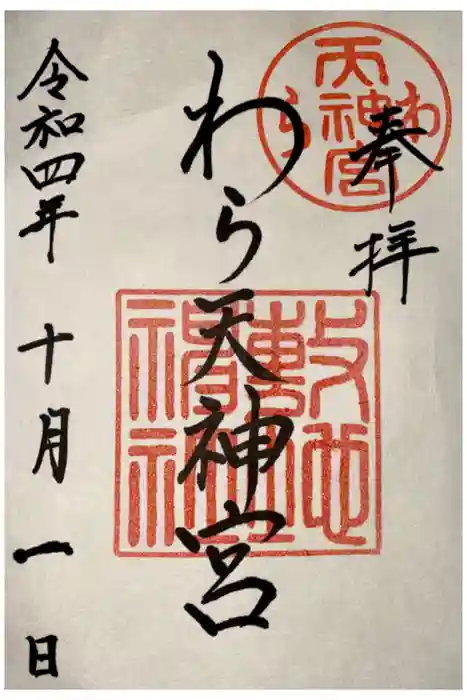 奉拝
わら天神宮
令和四年 十月 一日
わら
天神宮
敷地
神社